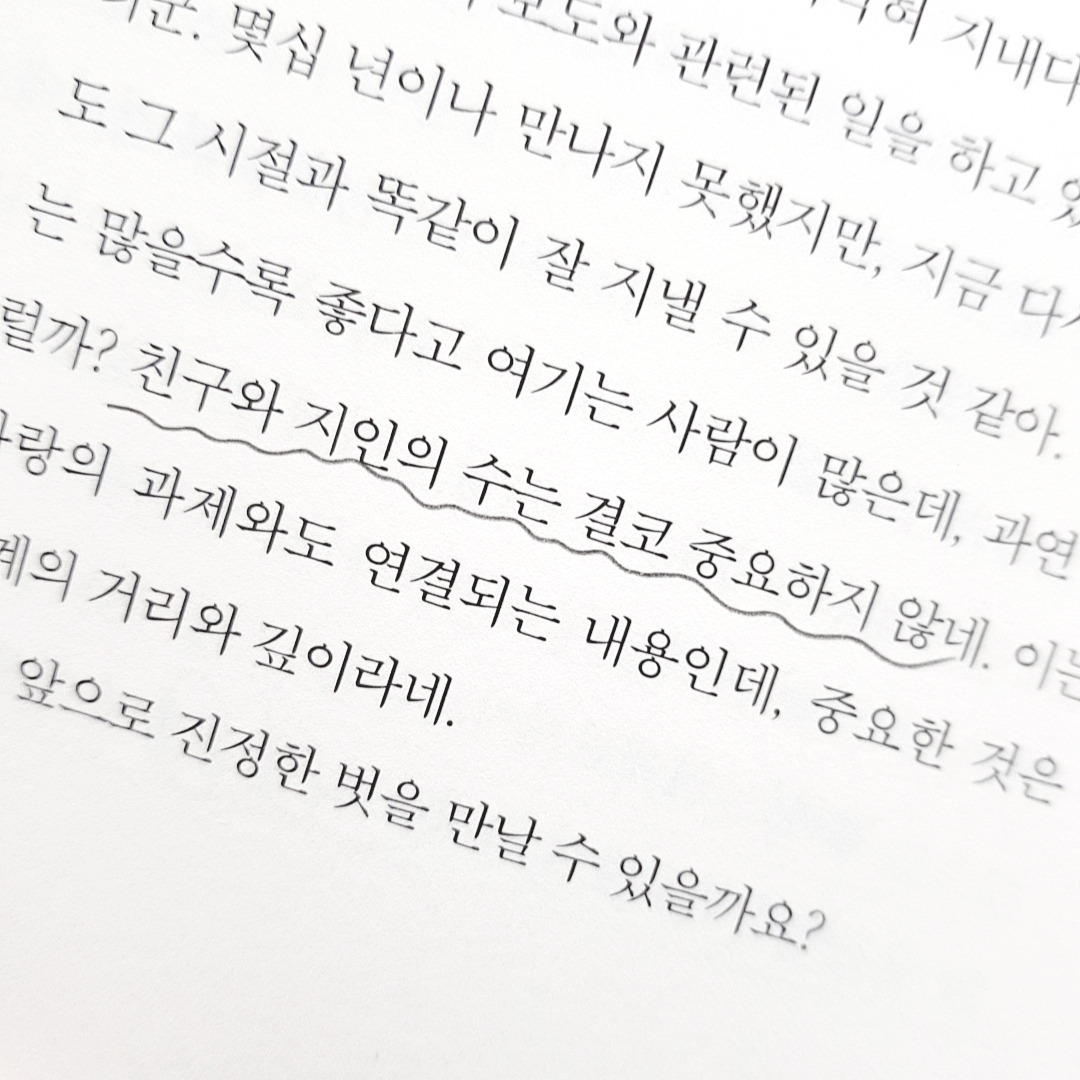 지내다
관련된 일을 하고
몇십 년이나 만나지 못했지만, 지금
도 그 시절과 똑같이 잘 지낼 수 있을 것 같아.
는 많을수록 좋다고 여기는 사람이 많은데, 과연
럴까? 친구와 지인의 수는 결코 중요하지 않네. 이는
랑의 과제와도 연결되는 내용인데, 중요한 것은
계의 거리와 깊이라네.
앞으로 진정한 벗을 만날 수 있을까요?